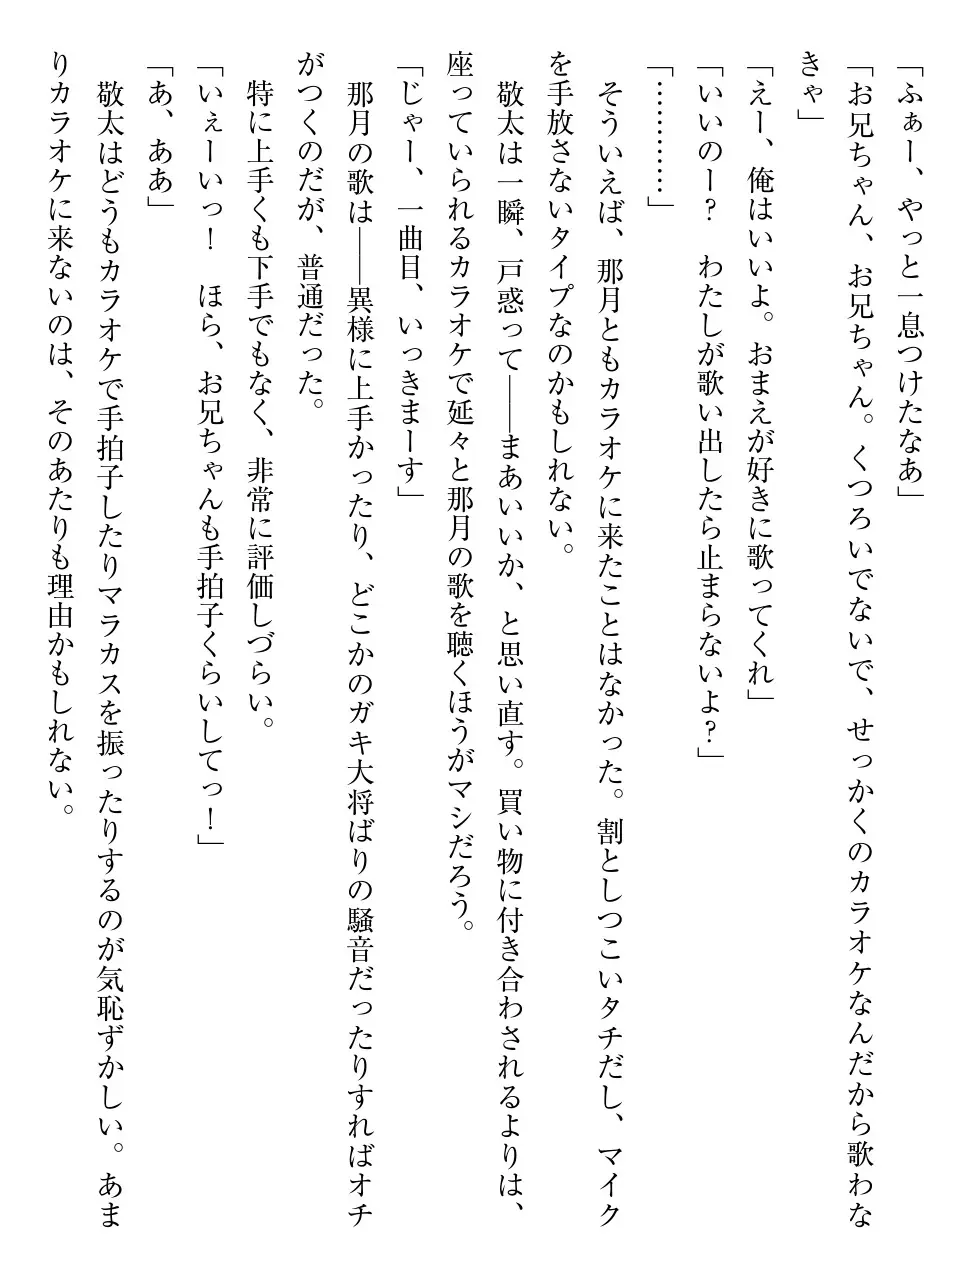 「ふぁー、やっと一息つけたなあ」
「お兄ちゃん、お兄ちゃん。くつろいでないで、せっかくのカラオケなんだから歌わな
きゃ」
「えー、俺はいいよ。おまえが好きに歌ってくれ」
「いいのー？　わたしが歌い出したら止まらないよ？」
「…………」
　そういえば、那月ともカラオケに来たことはなかった。割としつこいタチだし、マイク
を手放さないタイプなのかもしれない。
　敬太は一瞬、戸惑って――まあいいか、と思い直す。買い物に付き合わされるよりは、
座っていられるカラオケで延々と那月の歌を聴くほうがマシだろう。
「じゃー、一曲目、いっきまーす」
　那月の歌は――異様に上手かったり、どこかのガキ大将ばりの騒音だったりすればオチ
がつくのだが、普通だった。
　特に上手くも下手でもなく、非常に評価しづらい。
「いぇーいっ！　ほら、お兄ちゃんも手拍子くらいしてっ！」
「あ、ああ」
　敬太はどうもカラオケで手拍子したりマラカスを振ったりするのが気恥ずかしい。あま
りカラオケに来ないのは、そのあたりも理由かもしれない。